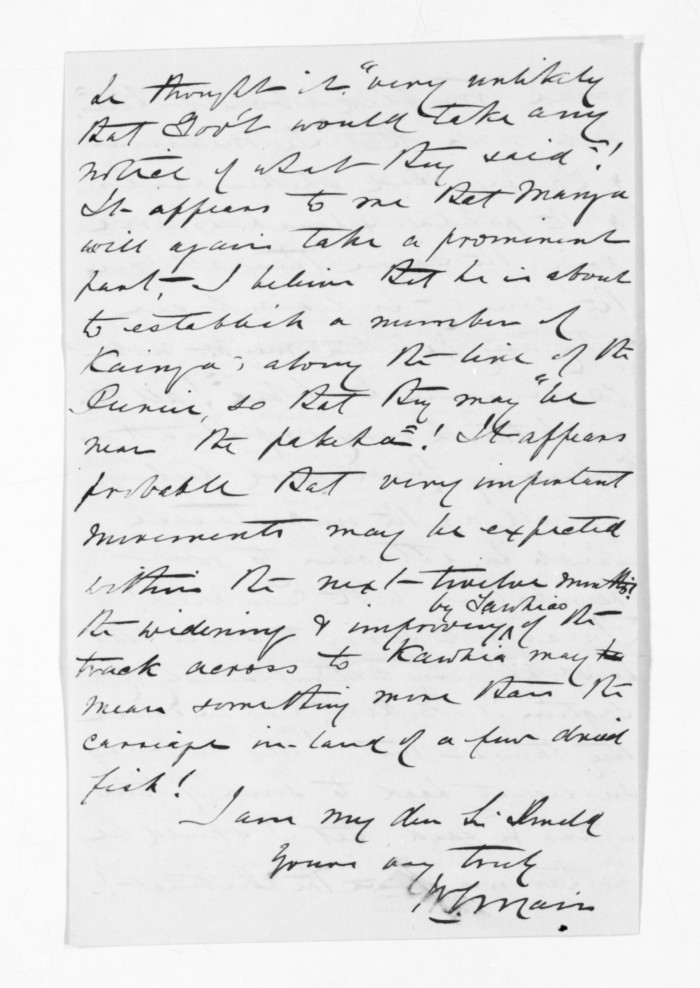 he thought it "very unlikely
that Gov't would take any
notice of what they said"!
It appears to me that Manga
will again take a prominent
part, - I believe that he is about
to establish a number of
Kainga's along the line of the
Puniu, so that they may "be
near the pakeha"! It appears
probable that very important
movements may be expected
within the next twelve months!
the widening & improving by Tawhiao of the
track across to Kawhia may
mean something more than the
carriage in-land of a few dried
fish!
I am my dear Sir Donald
Yours very truly
W G Mair